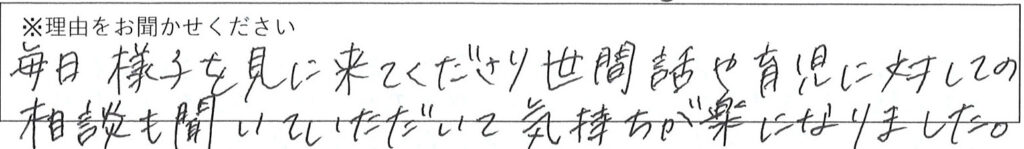 ※理由をお聞かせください
毎日様子を見に来てくださり世間話や育児に対しての
相談も聞いていただいて気持ちが楽になりました。